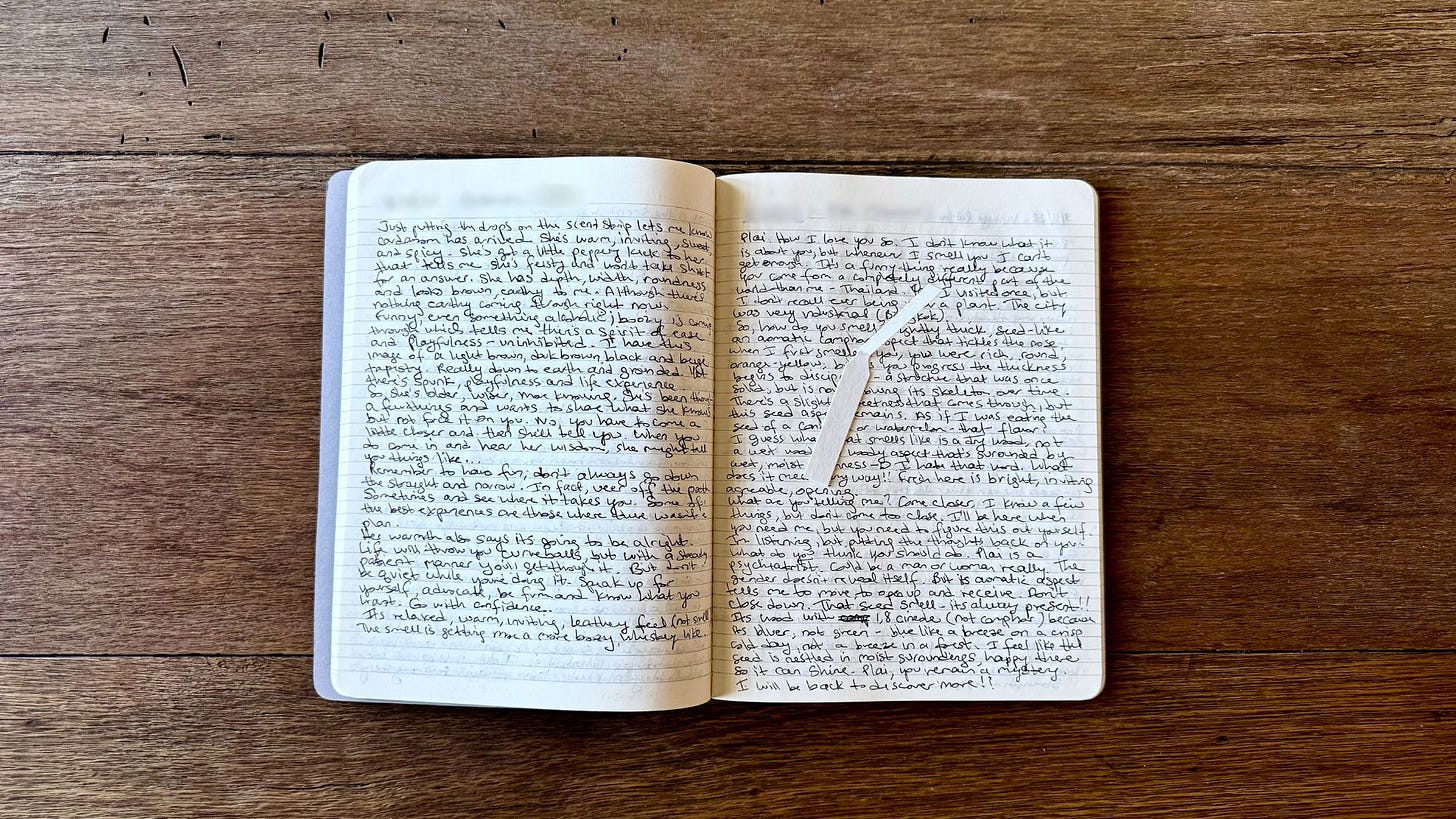 Just putting th drops on the scent strip lets me know
cardamom has arrived. She's warm, inviting, sweet
and spicy. She's got a little peppery kick to her
that tells me she's feisty and won't take shit
for an answer. She has depth, width, roundness
and looks brown, earthy to me. Although there's
nothing earthy coming through right now.
Funny, even something alcoholic, boozy is coming
through which tells me there's a spirit of ease
and playfulness - uninhibited. I have this
image of a light brown, dark brown, black and beige
tapestry. Really down to earth and grounded. But
there's spunk, playfulness and life experience
So, she's older, wiser, more knowing. She's been through
a few things and wants to share what she knows
but not force it on you. No, you have to come a
little closer and then she'll tell you. When you
do come in and hear her wisdom, she might tell
you things like...
Remember to have fun, don't always go down
the straight and narrow. In fact, veer off the path
Sometimes and see where it takes you. Some of
the best experiences are those where there wasn't a
plan.
Her warmth also says its going to be alright.
Life will throw you curveballs, but with a steady,
patient manner you'll get through it. But don't
be quiet while you're doing it. Speak up for
yourself, advocate, be firm and know what you
want. Go with confidence..
Its relaxed, warm, inviting, leathery feel (not smell)
The smell is getting more a more boozy, whiskey like.
Plai. How I love you so. I don't know what it
is about you, but whenever I smell you I can't
get enough. It's a funny thing really because
you come from a completely different part of the
world than me - Thailand. I visited once, but
I don't recall ever being a plant. The city
was very industrial (Bangkok).
So, how do you smell? slightly thick, seed-like
an aromatic camphor aspect that tickles the nose,
when I first smelled you you were rich, round,
orange-yellow, but you progress the thickness
begins to a structure that was once
solid, but is now its skeleton over time.
There's a slight sweetness that comes through, but
this seed aspect remains. As if I was eating the
seed of a or watermelon - that flavor.
I guess what that smells like is a dry wood, not
a wet wood woody aspect that's surounded by
wet, moist - I hate that word. What
does it me way!! Fresh here is bright, inviting
agreeable, opening.
What are you telling me? Come closer, I know a few
things, but don't come to close. I'll be here when
you need me, but you need to figure this out yourself.
I'm listening, but putting the thoughts back on you
what do you think you should do. Plai is a
psychiatrist. Could be a man or woman really. The
gender doesn't reveal itself. But its aromatic aspect
tells me to move to open up and receive. Don't
close down. That seed smell - its always present!!
Its wood with 1,8 cineole (not camphor) because
its bluer, not green - blue like a breeze on a crisp
cold day, not a breeze in a forest. I feel like the
seed is nestled in moist suroundings, happy there
so it can shine. Plai, you remain a mystery.
I will be back to discover more!!